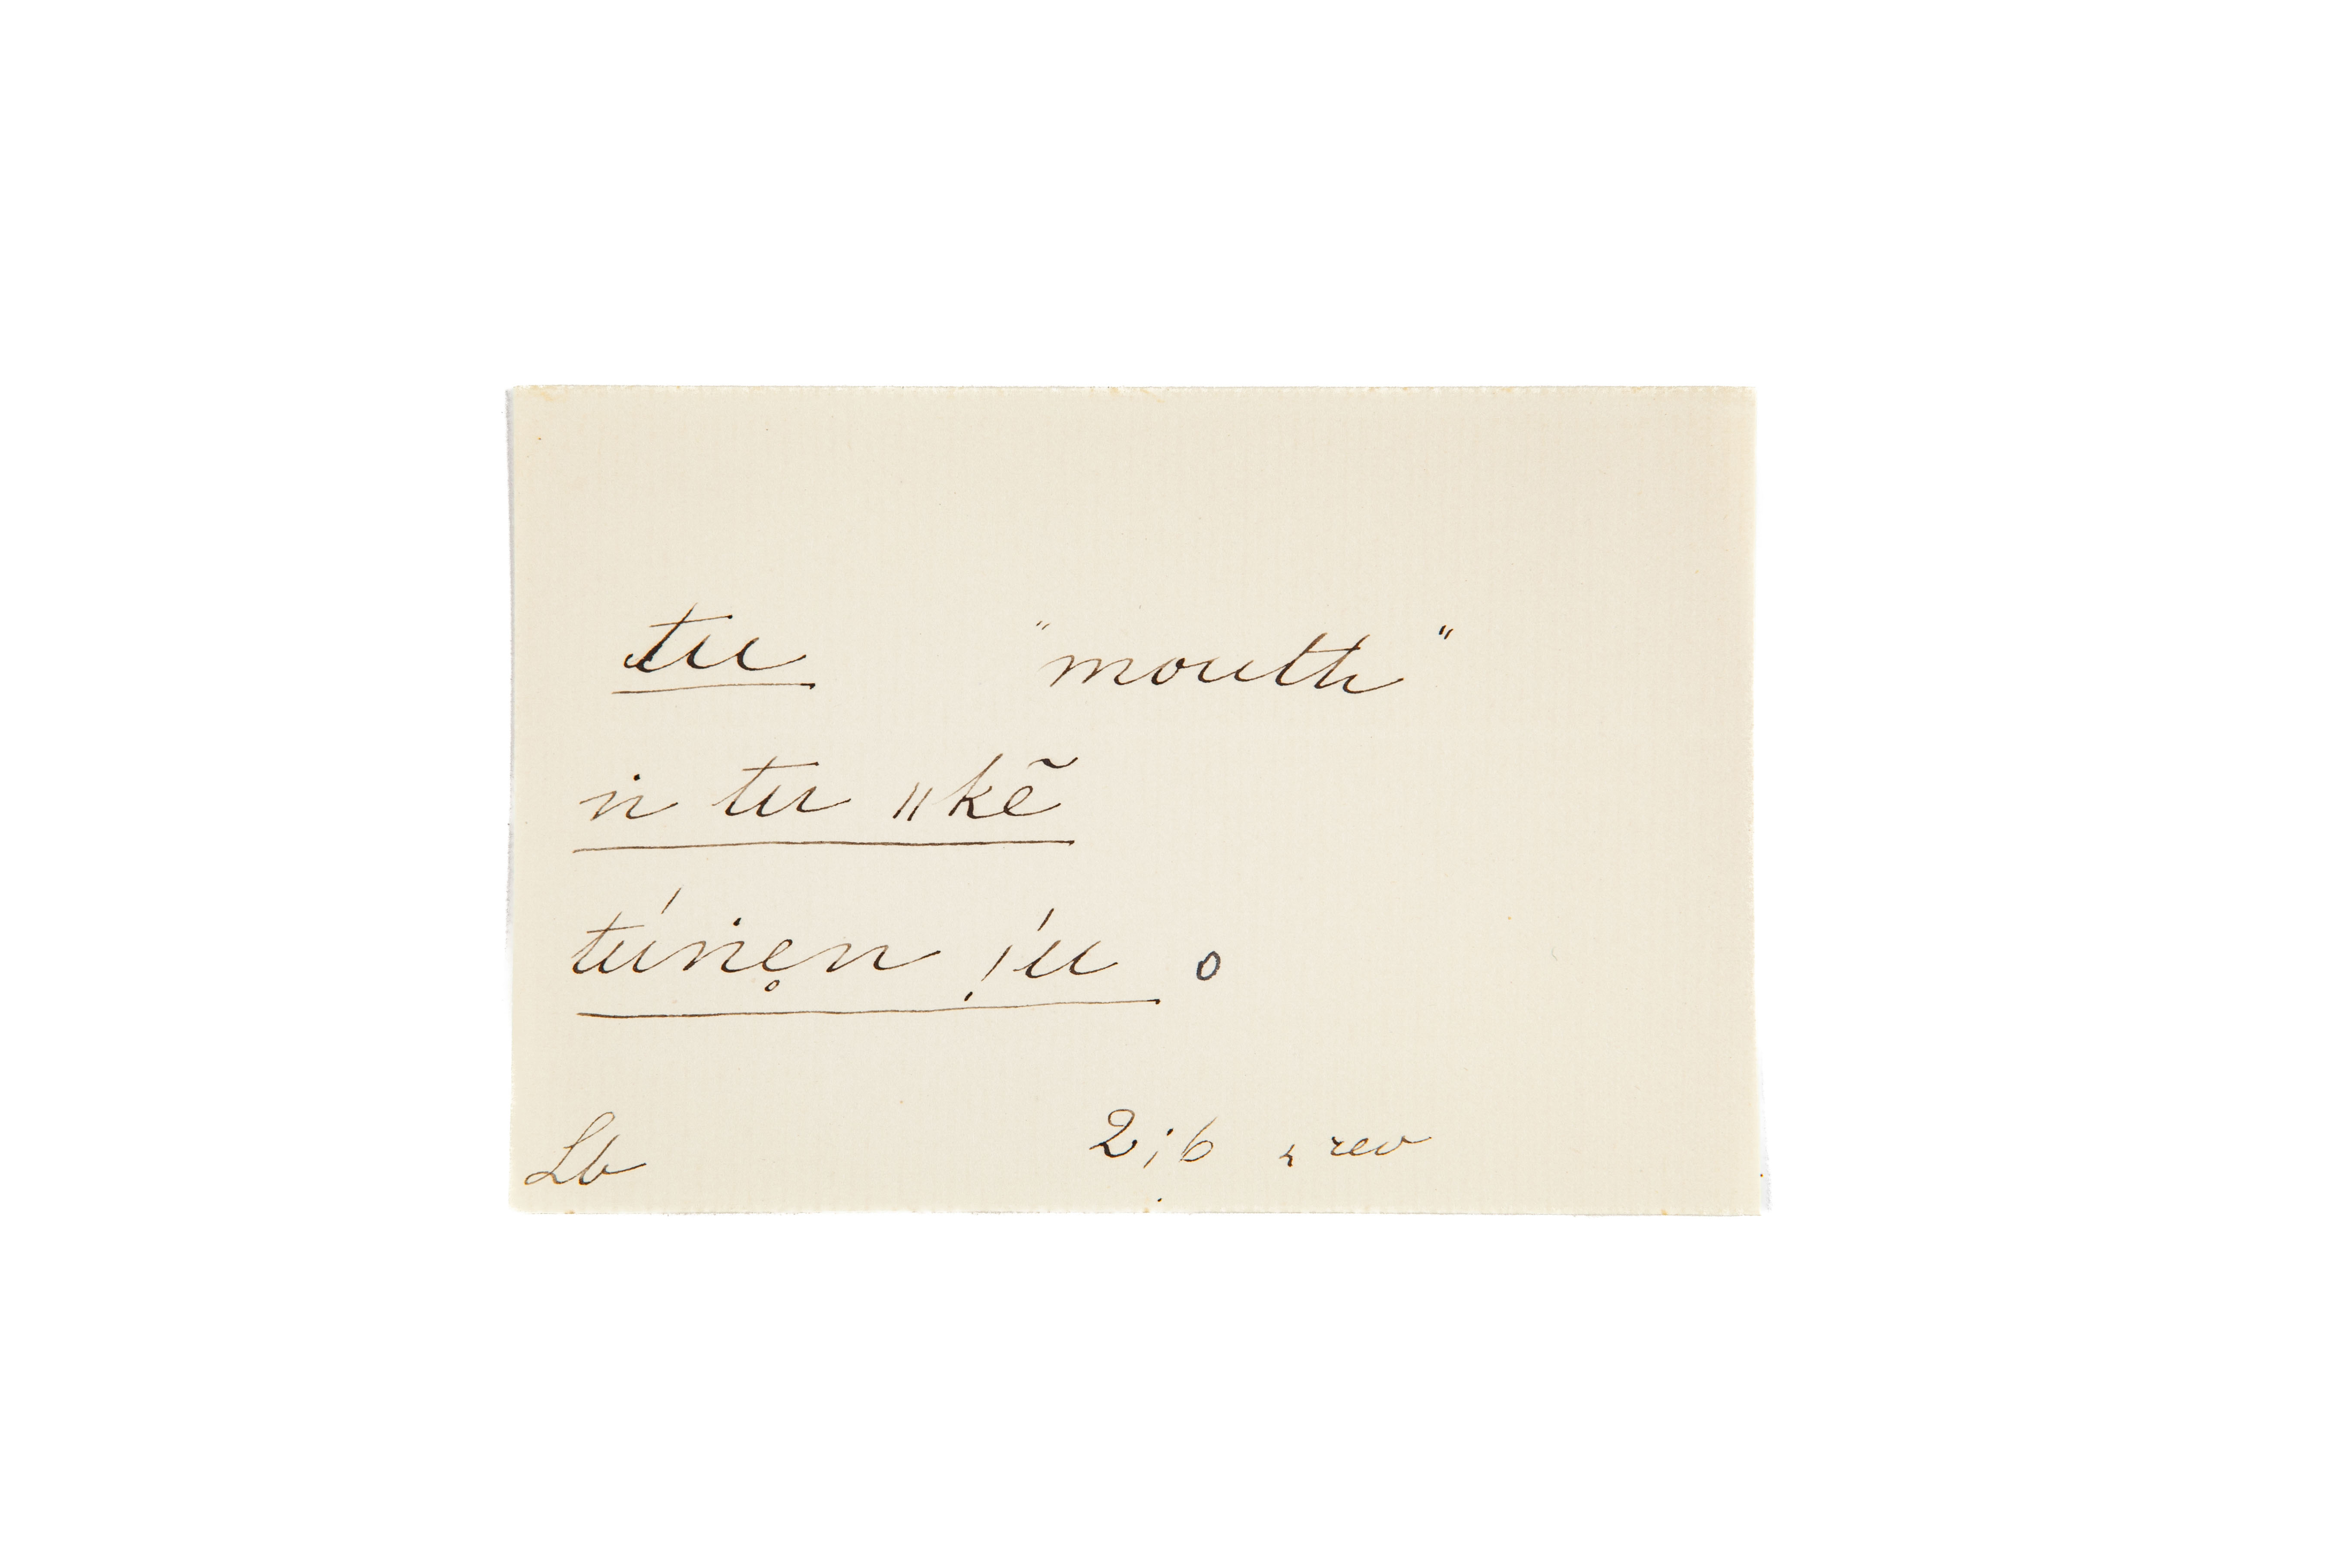 tu "mouth"
ṅ tu ǁkẽ
túṅe̥n ǃ́u o
Lb 2;6 rev